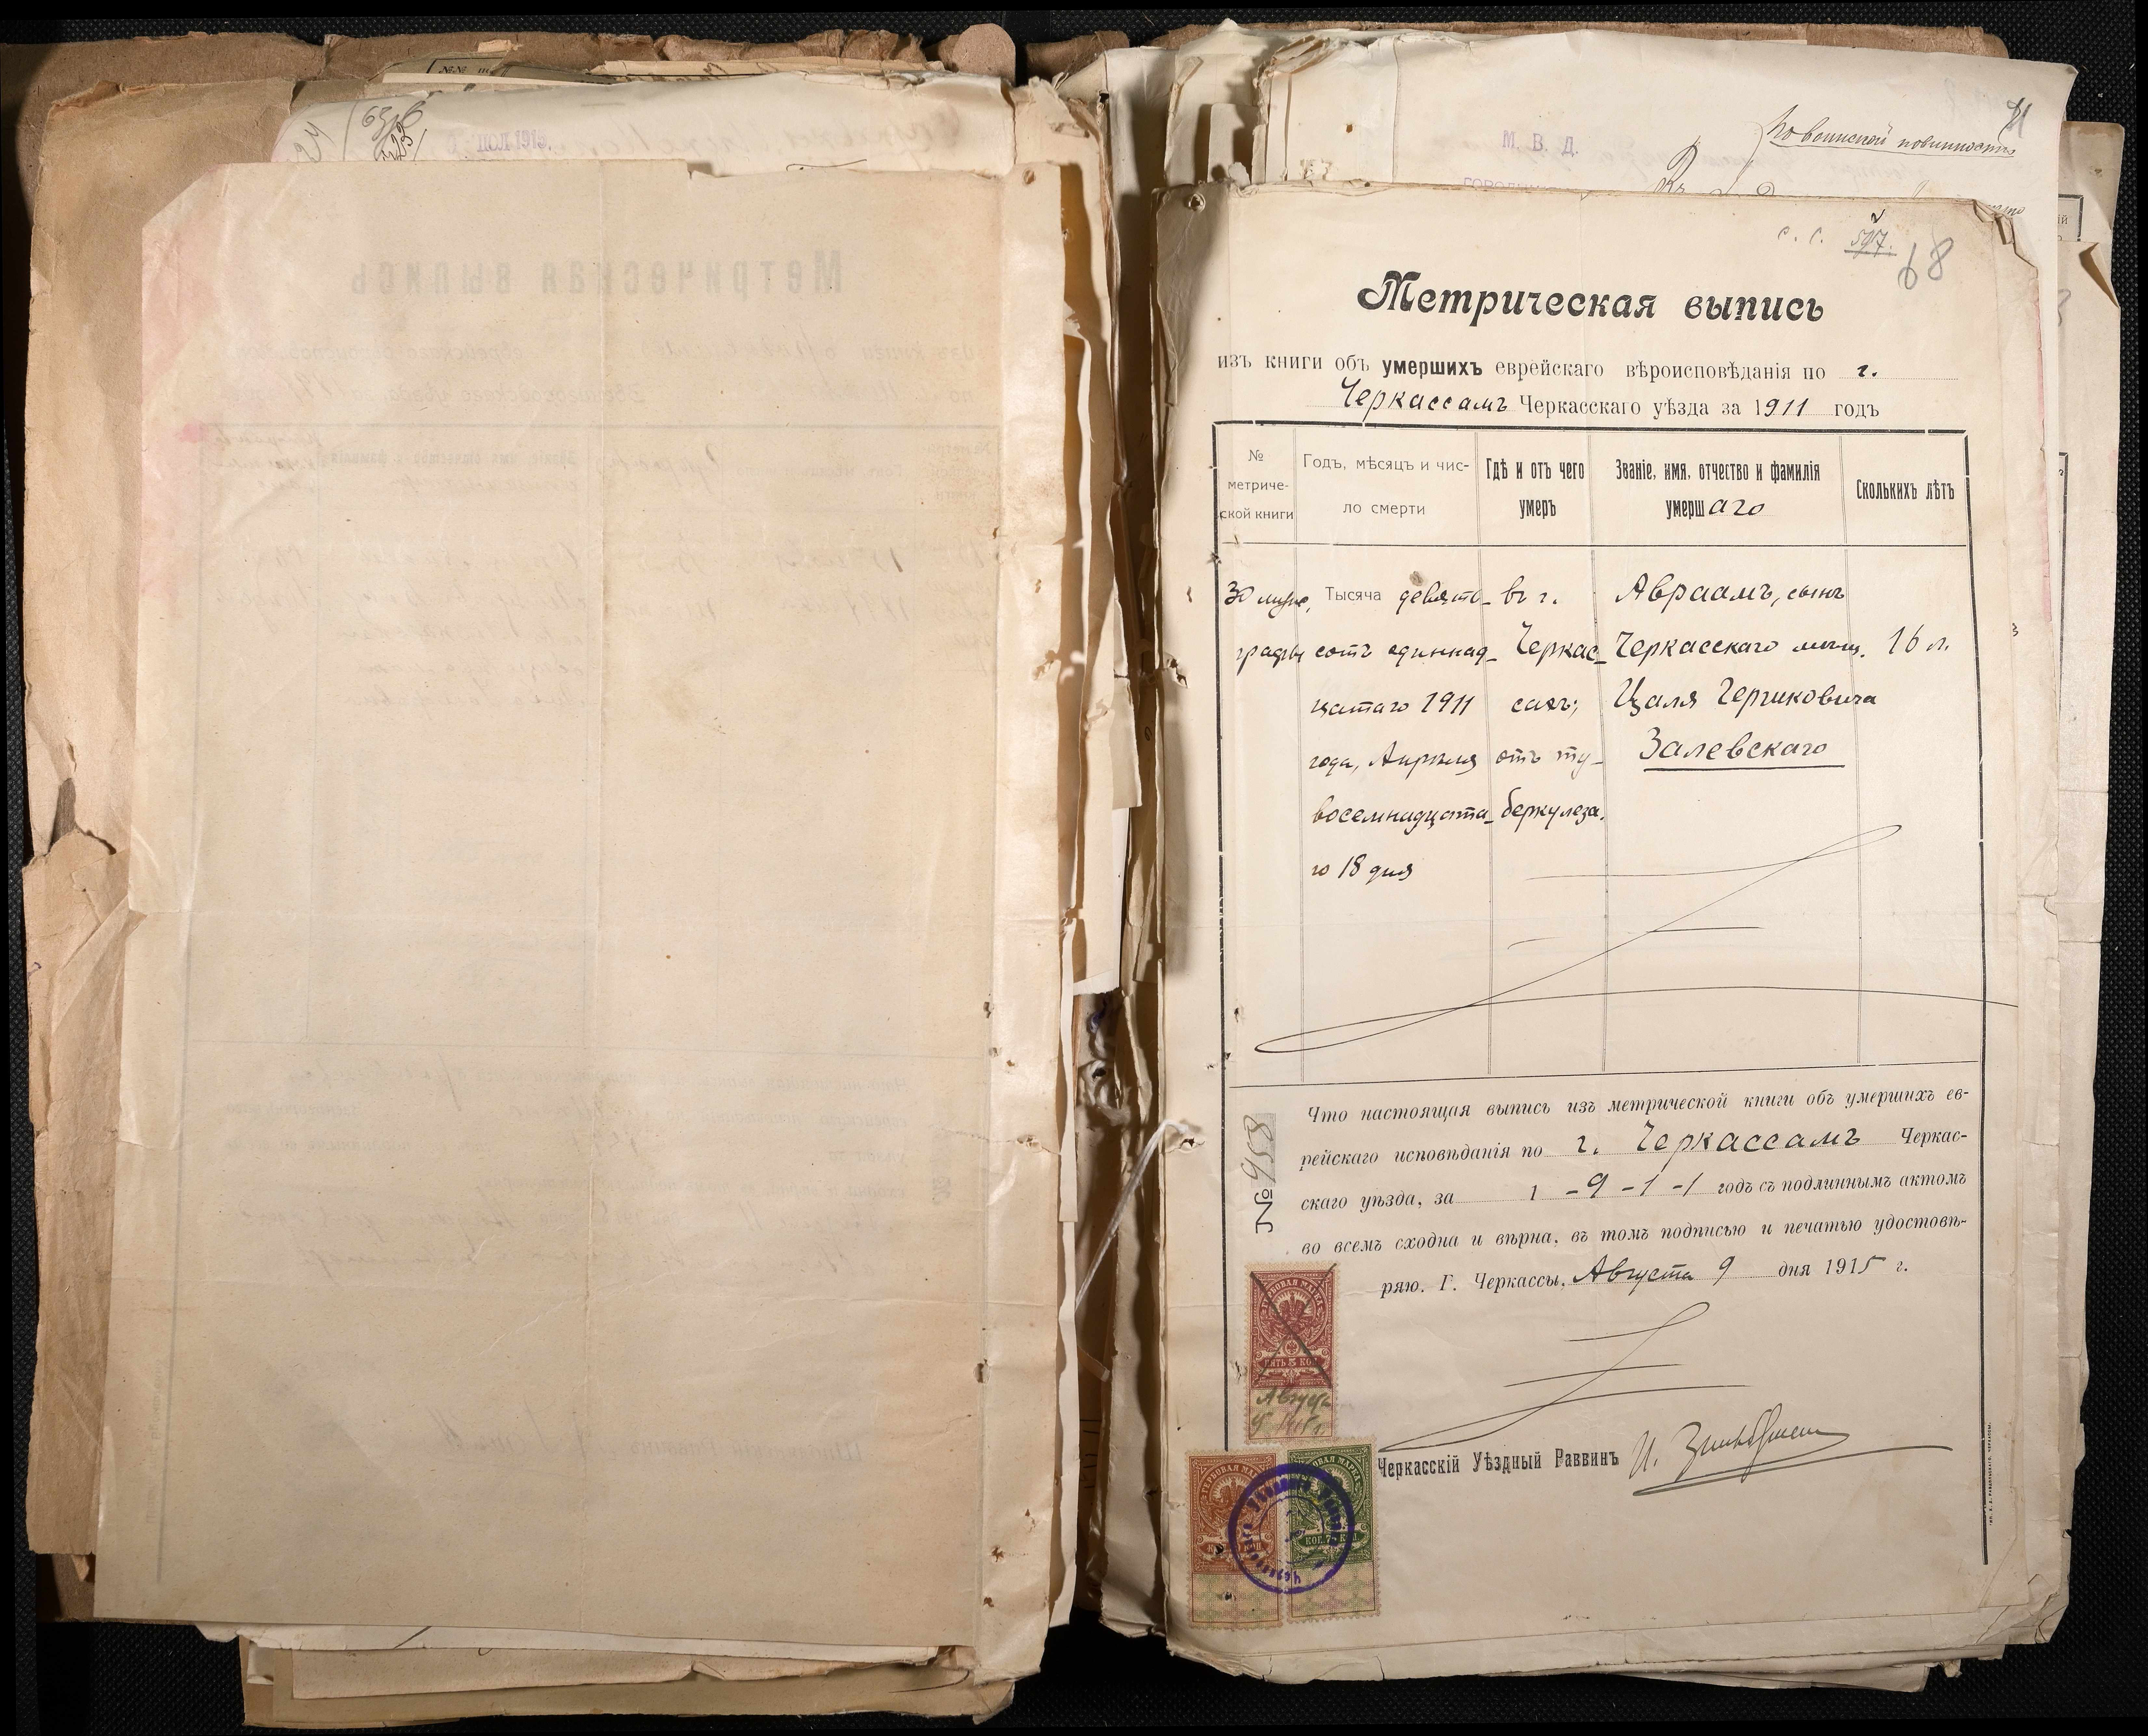 ПОЛ 1915
М. В. Д.
По воинской повинности
с. с. 597.
68
Метрическая выпись
изъ книги объ умершихъ еврейскаго вѣроисповѣданія по г.
Черкассамъ Черкасскаго уѣзда за 1911 годъ
№ метриче-ской книги
Годъ, мѣсяцъ и чис-ло смерти
Гдѣ и отъ чего умеръ
Званіе, имя, отчество и фамилія умершаго
Сколькихъ лѣтъ
30
графы
Тысяча девять-
сотъ одиннад-
цатаго 1911
года, Апрѣля
восемнадцата-
го 18 дня
въ г.
Черкас-
сахъ;
отъ ту-
беркулеза.
Авраамъ, сынъ
Черкасскаго мѣщ.
Цаля Гершковича
Залевскаго
16 л.
Что настоящая выпись изъ метрической книги объ умершихъ ев-
рейскаго исповѣданія по г. Черкассамъ Черкас-
скаго уѣзда, за 1 - 9 - 1 - 1 годъ съ подлиннымъ актомъ
во всемъ сходна и вѣрна, въ томъ подписью и печатью удостовѣ-
ряю. Г. Черкассы, Августа 9 дня 1915 г.
№ 953
ГЕРБОВАЯ МАРКА
ПЯТЬ 5 КОП
Августа
9 1915 г.
Черкасскій Уѣздный Раввинъ И.
ГЕРБОВАЯ МАРКА
ГЕРБОВАЯ МАРКА
КОП. 75 КОП